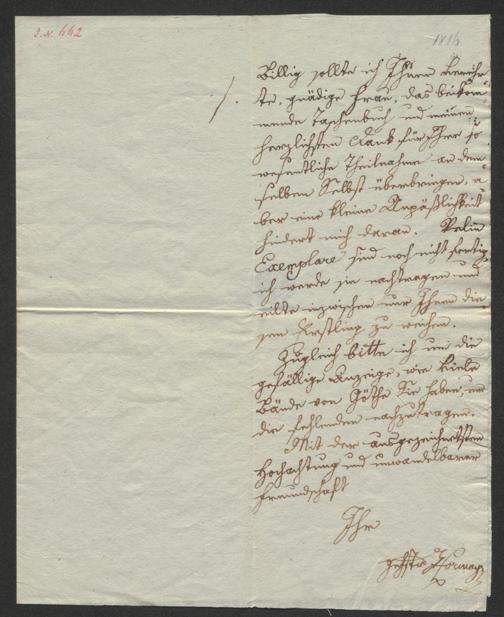 I. N. 662
1816
Billig sollte ich Ihnen Verehr-
te, gnädige Frau, das beikom-
mende Taschenbuch und meinen
herzlichsten Dank für Ihre so
wesentliche Theilnahme an dem-
selben Selbst überbringen, a-
ber eine kleine Unpäßlichkeit
hindert mich daran. Velin
Exemplare sind noch nicht fertig
ich werde sie nachtragen und
eilte inzwischen nur Ihnen die-
sen Erstling zu weihen.
Zugleich bitte ich um die
gefällige Anzeige, wie viele
Bände von Göthe Sie haben, um
die fehlenden nachzutragen.
Mit der ausgezeichnetsten
Hochachtung und unwandelbarer
Freundschaft
Ihr
Hormayr